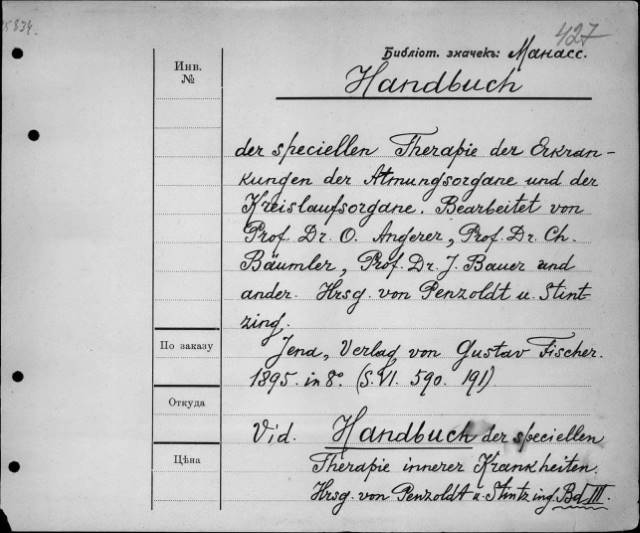 427
Библіот. значекъ: Манасс.
Инв.
№
Handbuch
der speciellen Therapie der Erkran-
kungen der Atmungsorgane und der
Kreislaufsorgane. Bearbeitet von
Prof. Dr. O. Angerer, Prof. Dr. Ch.
Bäumler, Prof. Dr. J. Bauer und
ander. Hrsg. von Penzoldt u. Stint-
zing.
По заказу
Jena, Verlag von Gustav Fischer.
1895. in 8° (S. VI. 590. 191)
Откуда
Vid. Handbuch der speciellen
Цѣна
Therapie innerer Krankheiten.
Hrsg. von Penzoldt u. Stintzing. Bd III.